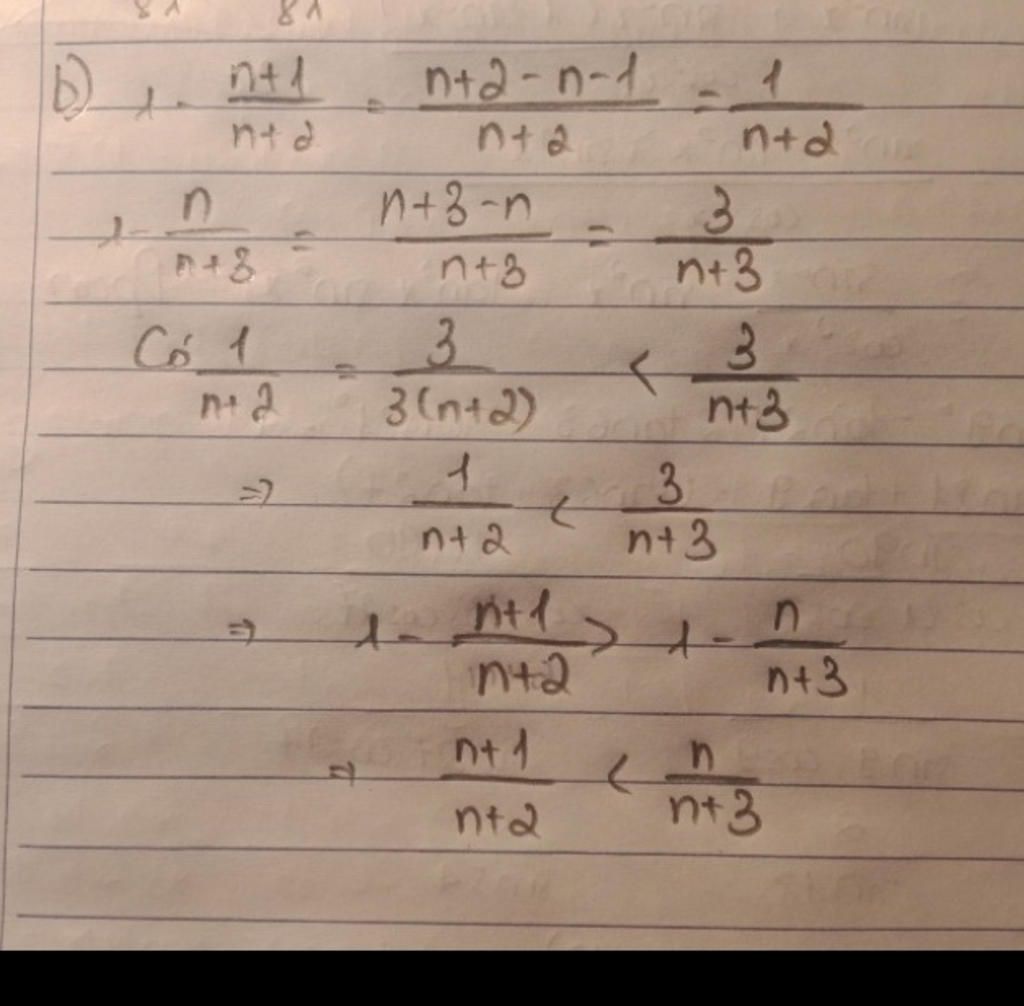 81 81
b) 1 - \frac{n+1}{n+2} = \frac{n+2-n-1}{n+2} = \frac{1}{n+2}
1 - \frac{n}{n+3} = \frac{n+3-n}{n+3} = \frac{3}{n+3}
Có \frac{1}{n+2} = \frac{3}{3(n+2)} < \frac{3}{n+3}
⇒ \frac{1}{n+2} < \frac{3}{n+3}
⇒ 1 - \frac{n+1}{n+2} > 1 - \frac{n}{n+3}
⇒ \frac{n+1}{n+2} < \frac{n}{n+3}